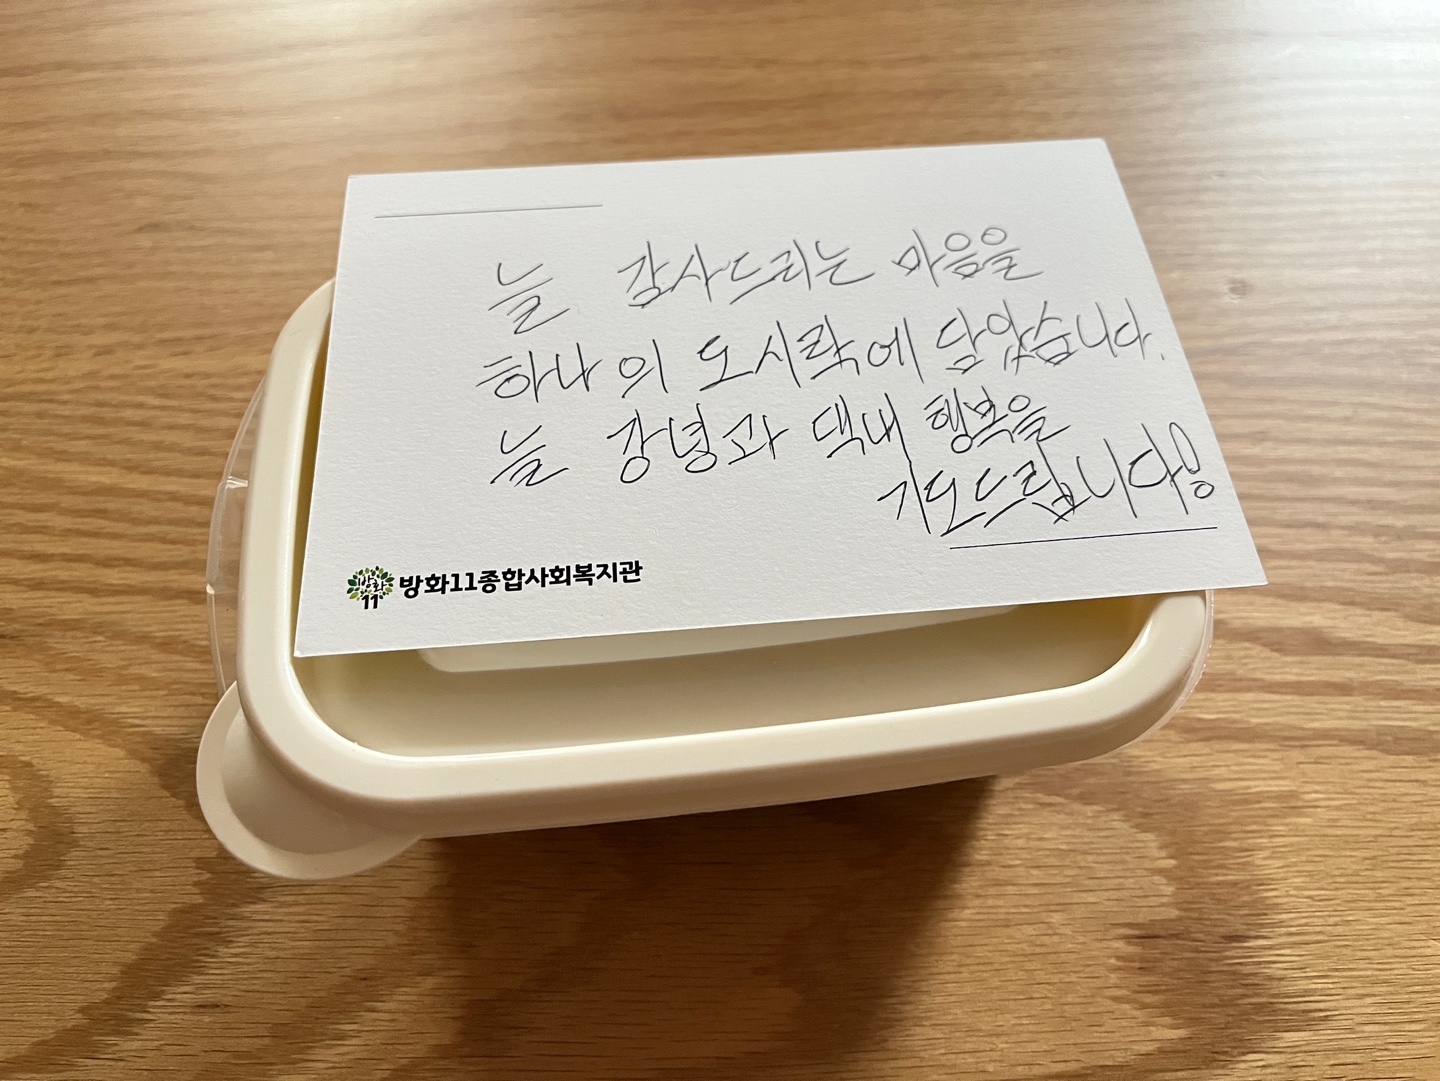 늘 감사드리는 마음을
하나의 도시락에 담았습니다.
늘 강녕과 댁내 행복을
기도드립니다!
방화 11 방화11종합사회복지관